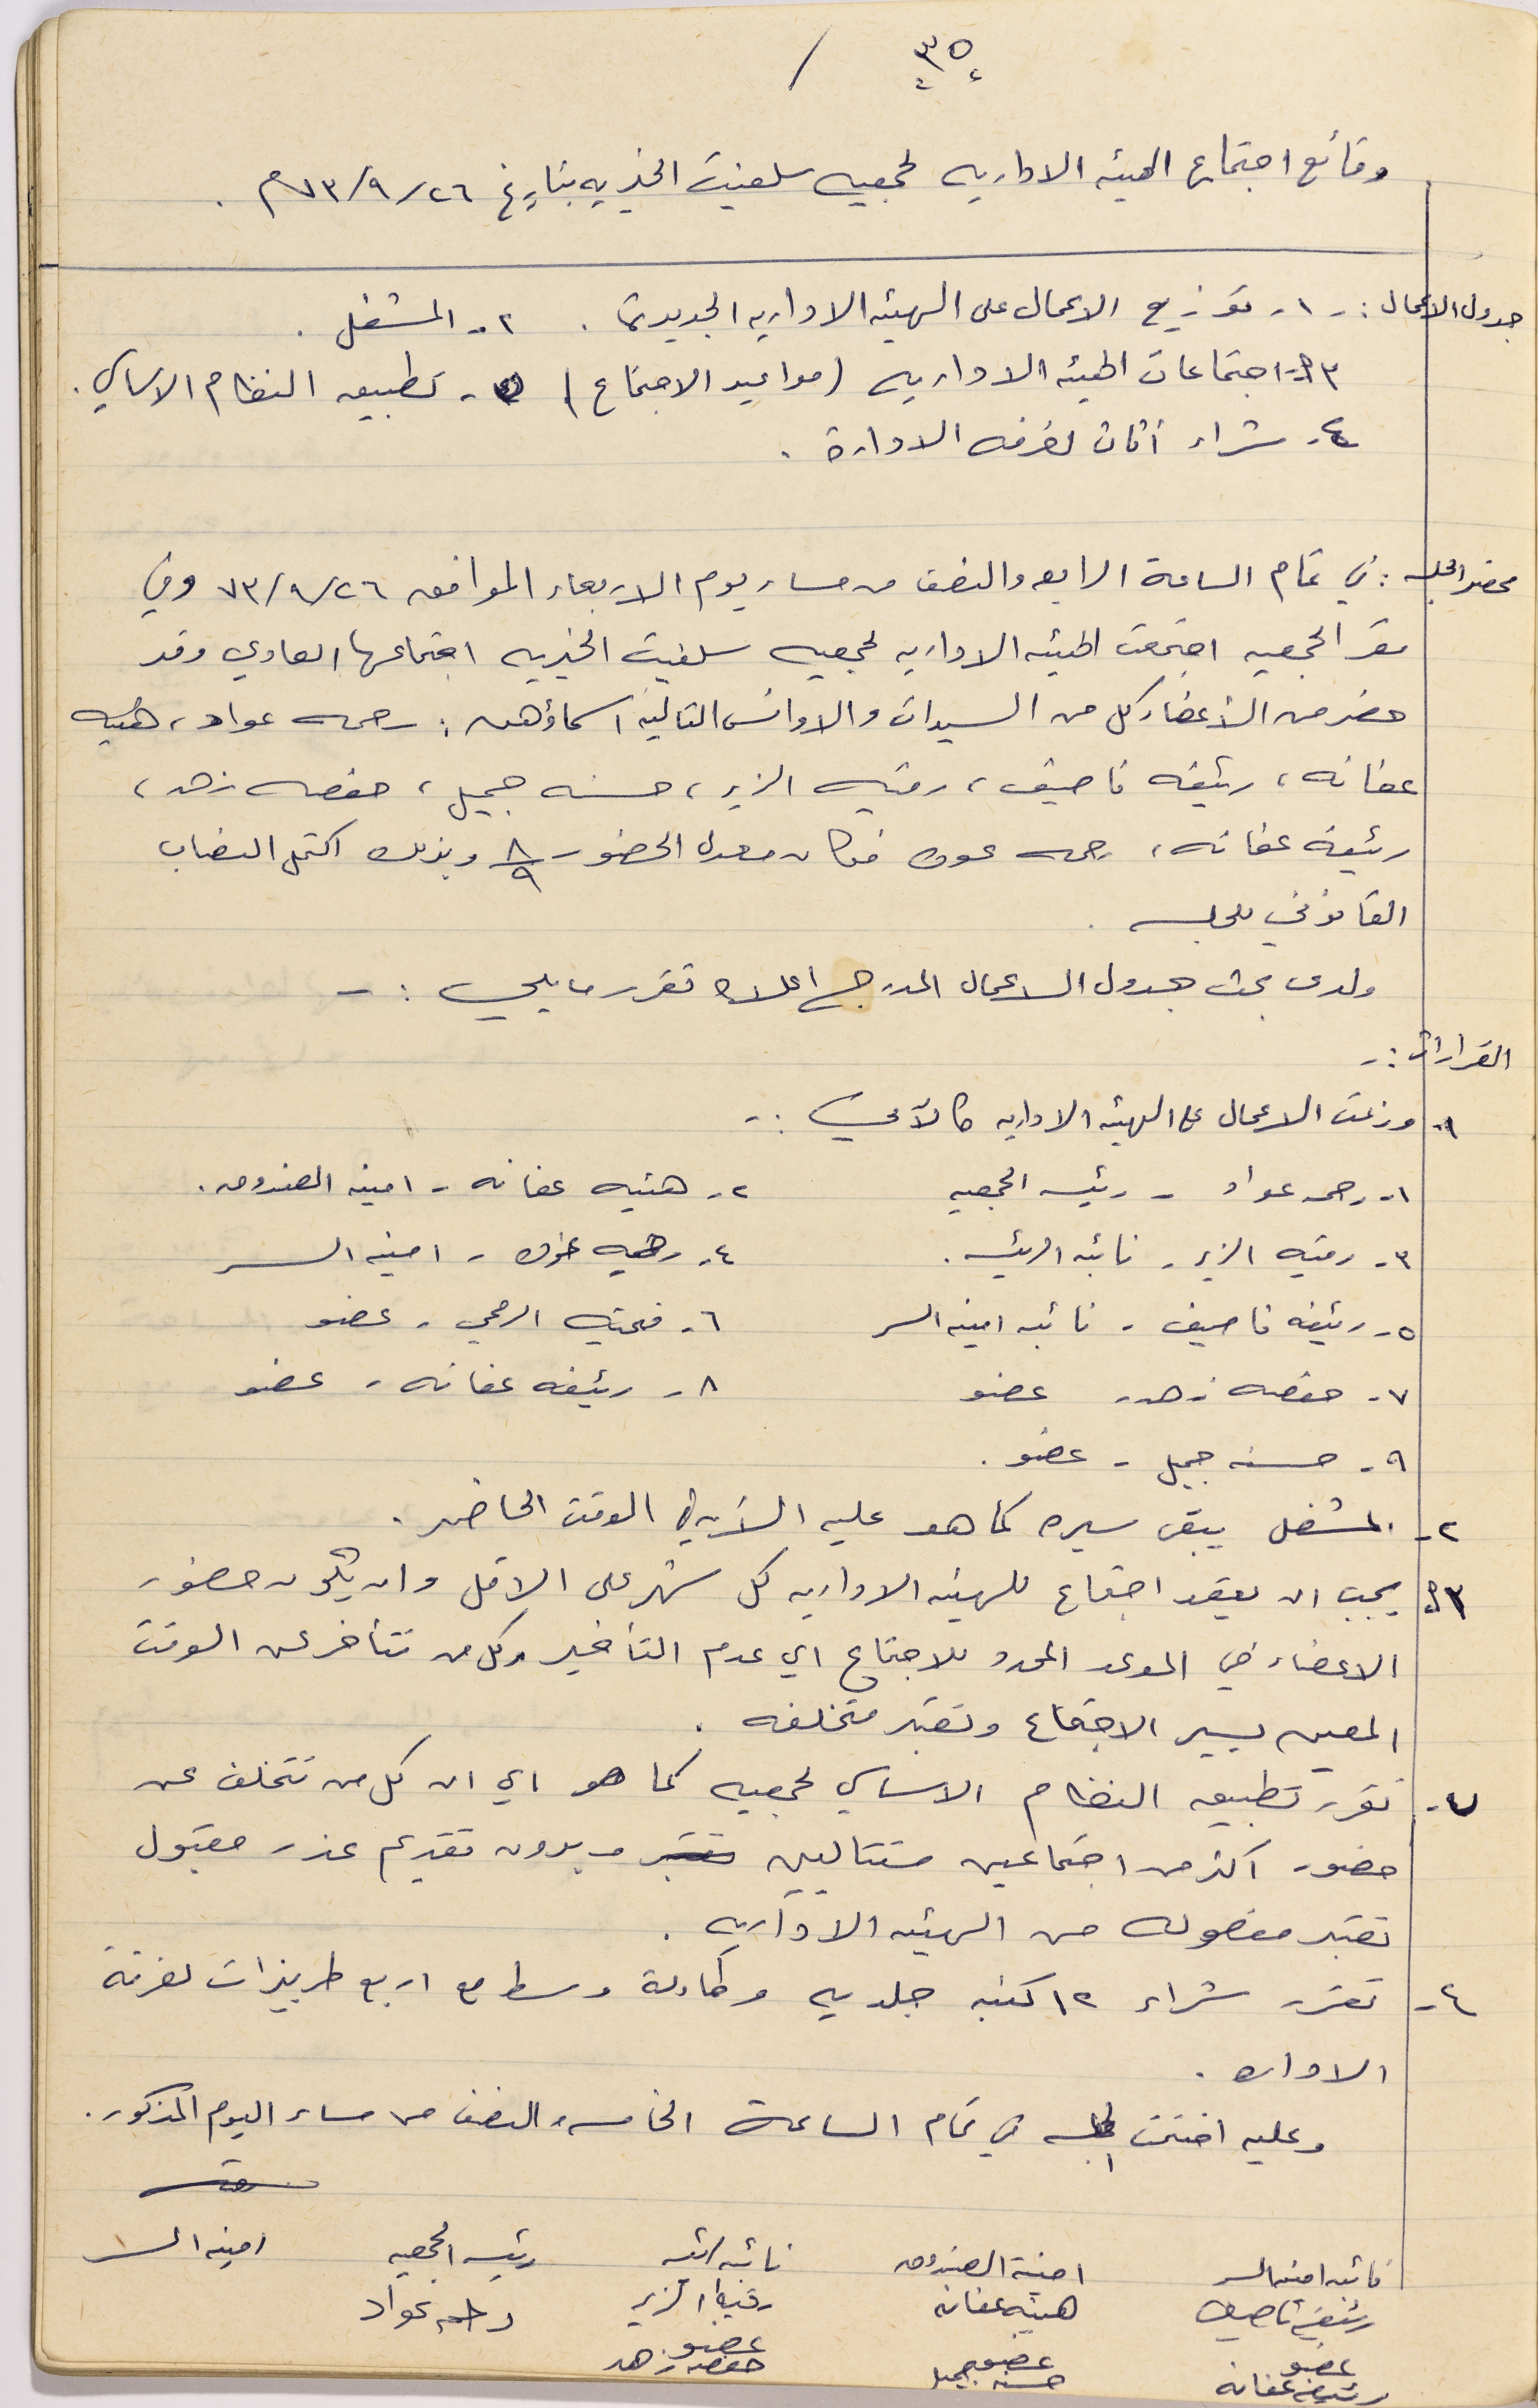 ٣٥ /
وقائع اجتماع الهيئه الاداريه لجمعيه سلفيت الخيريه بتاريخ ٢٦/٩/٧٣م .
جدول الاعمال :- ١- توزيع الاعمال على الهيئه الاداريه الجديدة . ٢- المشغل .
٣- اجتماعات الهيئه الاداريه (مواعيد الاجتماع) - تطبيق النظام الاساسي .
٤- شراء أثاث لغرفه الادارة .
محضر الجلسه : في تمام الساعة الرابعه والنصف من مساء يوم الاربعاء الموافق ٢٦/٩/٧٣ وفي
مقر الجمعيه اجتمعت الهيئه الاداريه لجمعيه سلفيت الخيريه اجتماعها العادي وقد
حضر من الأعضاء كل من السيدات والاوانس التاليه اسماؤهن : رحمه عواد ، هنيه
عفانه ، رئيفه ناصيف ، رقيه الزير ، حسنه جميل ، حفصه زهد ،
رئيفة عفانه ، رحمه عوده فكان معدل الحضور ٨/٩ وبذلك اكتمل النصاب
القانوني للجلسه .
ولدى بحث جدول الاعمال المدرج اعلاه تقرر ما يلي :-
القرارات :-
١- وزعت الاعمال على الهيئه الاداريه كالآتي :-
١- رحمه عواد - رئيسه الجمعيه ٢- هنيه عفانه - امينه الصندوق .
٣- رقيه الزير - نائبه الرئيسه . ٤- - امينه السر
٥- رئيفه ناصيف - نائبه امينه السر ٦- فتحيه - عضو
٧- حفصه زهد - عضو ٨- رئيفه عفانه - عضو
٩- حسنه جميل - عضو .
٢- المشغل يبقى سيره كما هو عليه الآن في الوقت الحاضر .
٣- يجب ان يعقد اجتماع للهيئه الاداريه كل شهر على الاقل وان يكون حضور
الاعضاء في الموعد المحدد للاجتماع اي عدم التأخير وكل من تتأخر عن الوقت
المعين يسير الاجتماع وتعتبر متخلفه .
- تقرر تطبيق النظام الاساسي لجمعيه كما هو اي ان كل من تتخلف عن
حضور اكثر من اجتماعين متتاليين وبدون تقديم عذر مقبول
تعتبر مفصوله من الهيئه الاداريه .
٤- تقرر شراء ١٢ كنبه جلديه وطاولة وسط مع اربع طربيزات لغرفة
الاداره .
وعليه اختتمت الجلسه في تمام الساعة الخامسه والنصف من مساء اليوم المذكور .
نائبه امينه السر امينة الصندوق نائبه الرئيسه رئيسه الجمعيه امينه السر
رئيفه ناصيف هنيه عفانه رقيه الزير رحمه عواد
عضو عضو عضو
رئيفه عفانه حسنه جميل حفصه زهد